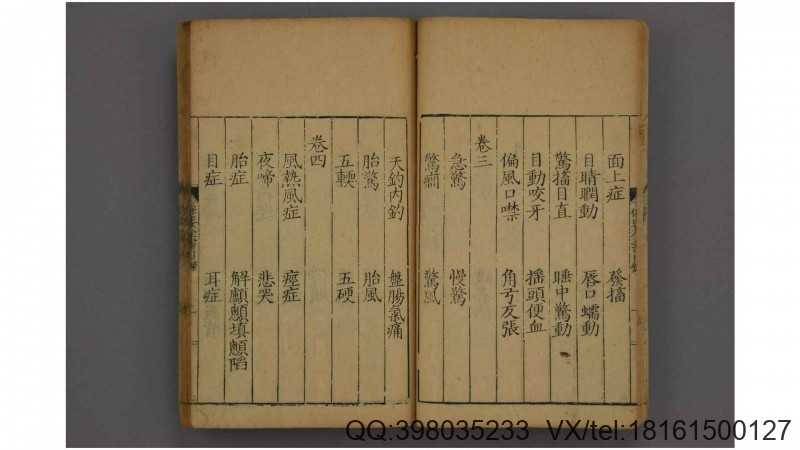 面上症 發搐
目睛瞤動 唇口蠕動
驚搐目直 睡中驚動
目動咬牙 搖頭便血
偏風口噤 角弓反張
卷三
急驚 慢驚
驚癇 驚風
天釣內釣 盤腸氣痛
胎驚 胎風
五軟 五硬
卷四
風熱風症 痙症
夜啼 悲哭
胎症 解顱顖填顖陷
目症 耳症
QQ:398035233 VX/tel:18161500127